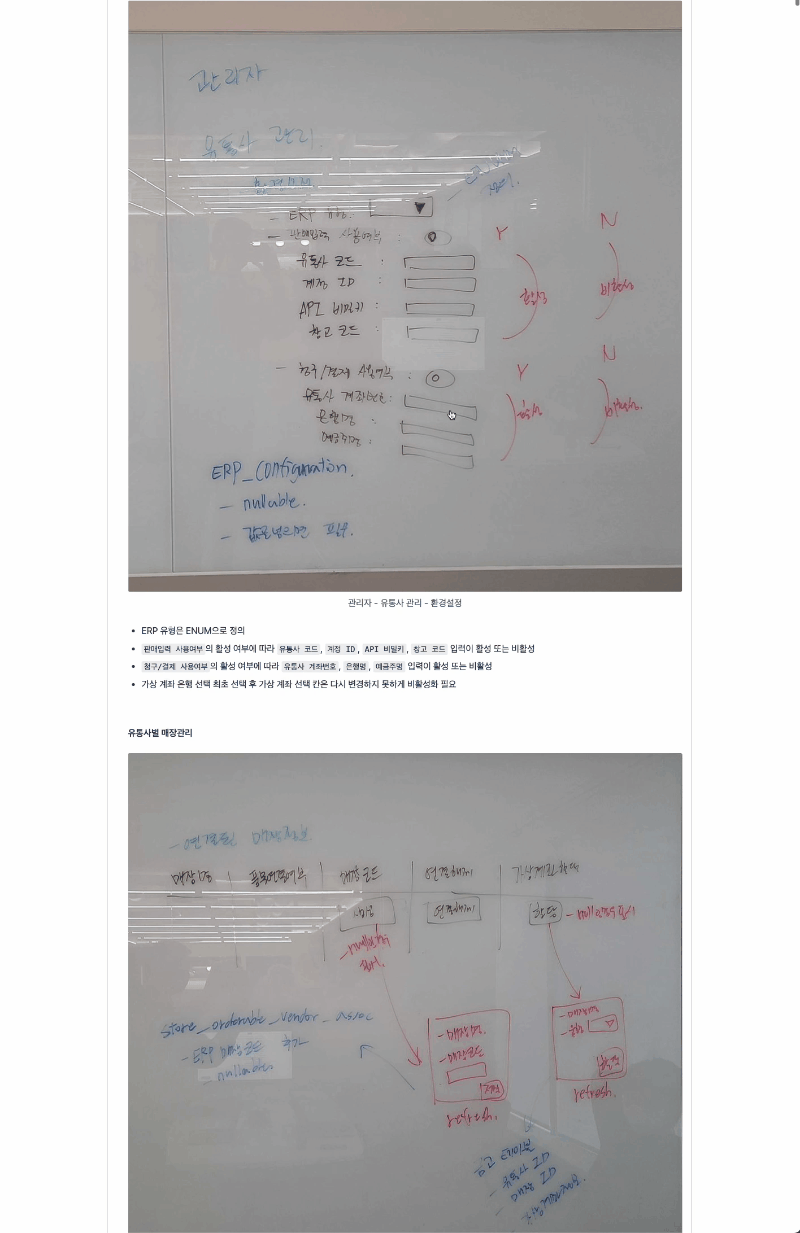 관리자
유통사 관리.
환경설정
- ERP 유형 :
- 판매입력 사용여부 :
Y
N
유통사 코드 :
계정 ID :
API 비밀키 :
창고 코드 :
활성
비활성
- 청구/결제 사용여부 :
Y
N
유통사 계좌번호 :
은행명 :
예금주명 :
활성
비활성.
ERP_Configuration.
- nullable.
- 값을 넣으면 필수.
관리자 - 유통사 관리 - 환경설정
• ERP 유형은 ENUM으로 정의
• 판매입력 사용여부 의 활성 여부에 따라 유통사 코드, 계정 ID, API 비밀키, 창고 코드 입력이 활성 또는 비활성
• 청구/결제 사용여부 의 활성 여부에 따라 유통사 계좌번호, 은행명, 예금주명 입력이 활성 또는 비활성
• 가상 계좌 은행 선택 최초 선택 후 가상 계좌 선택 칸은 다시 변경하지 못하게 비활성화 필요
유통사별 매장관리
- 연결된 매장정보
매장명
매장코드
연결해제
연결해제
할당
Store_orderable_vendor_assoc
- ERP 매장코드 추가
- nullable
- 매장명.
- 매장코드
저장
refresh.
- 매장명
- 은행
refresh.
- 유통사 ID
- 매장 ID